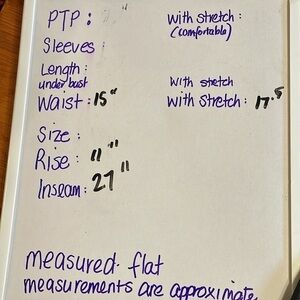 PTP :
with stretch :
(comfortable)
Sleeves :
Length :
under bust
with stretch
Waist : 15"
with stretch : 17.5
Size :
Rise : 11"
Inseam : 27"
measured flat
measurements are approximate